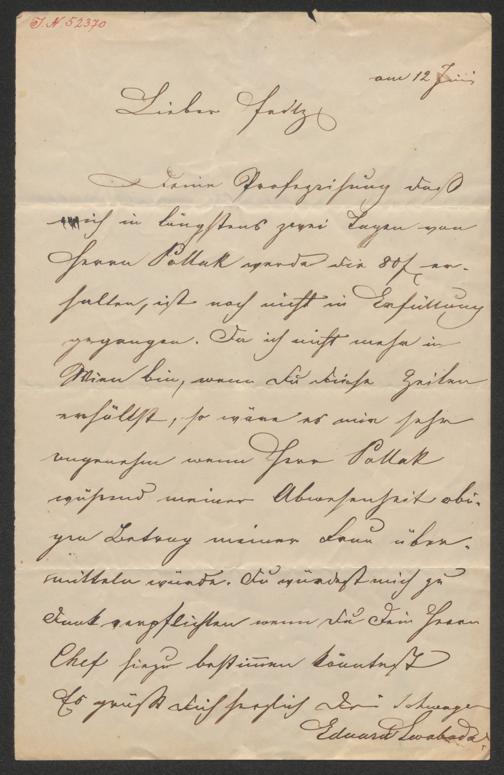 I. N 52370
am 12 Juni
Lieber Fritz
Deine Profezeihung daß
ich in längstens zwei Tagen von
Herrn Pollak werde die 80 f er-
halten, ist noch nicht in Erfüllung
gegangen. Da ich nicht mehr in
Wien bin, wenn Du diese Zeilen
erhältst, so wäre es mir sehr
angenehm wenn Herr Pollak
während meiner Abwesenheit obi-
gen Betrag meiner Frau über-
mitteln würde. Du würdest mich zu
Dank verpflichten wenn Du Dein Herrn
Chef hiezu bestim̄en könntest
Es grüßt Dich herzlich Dein Schwager
Eduard Swoboda